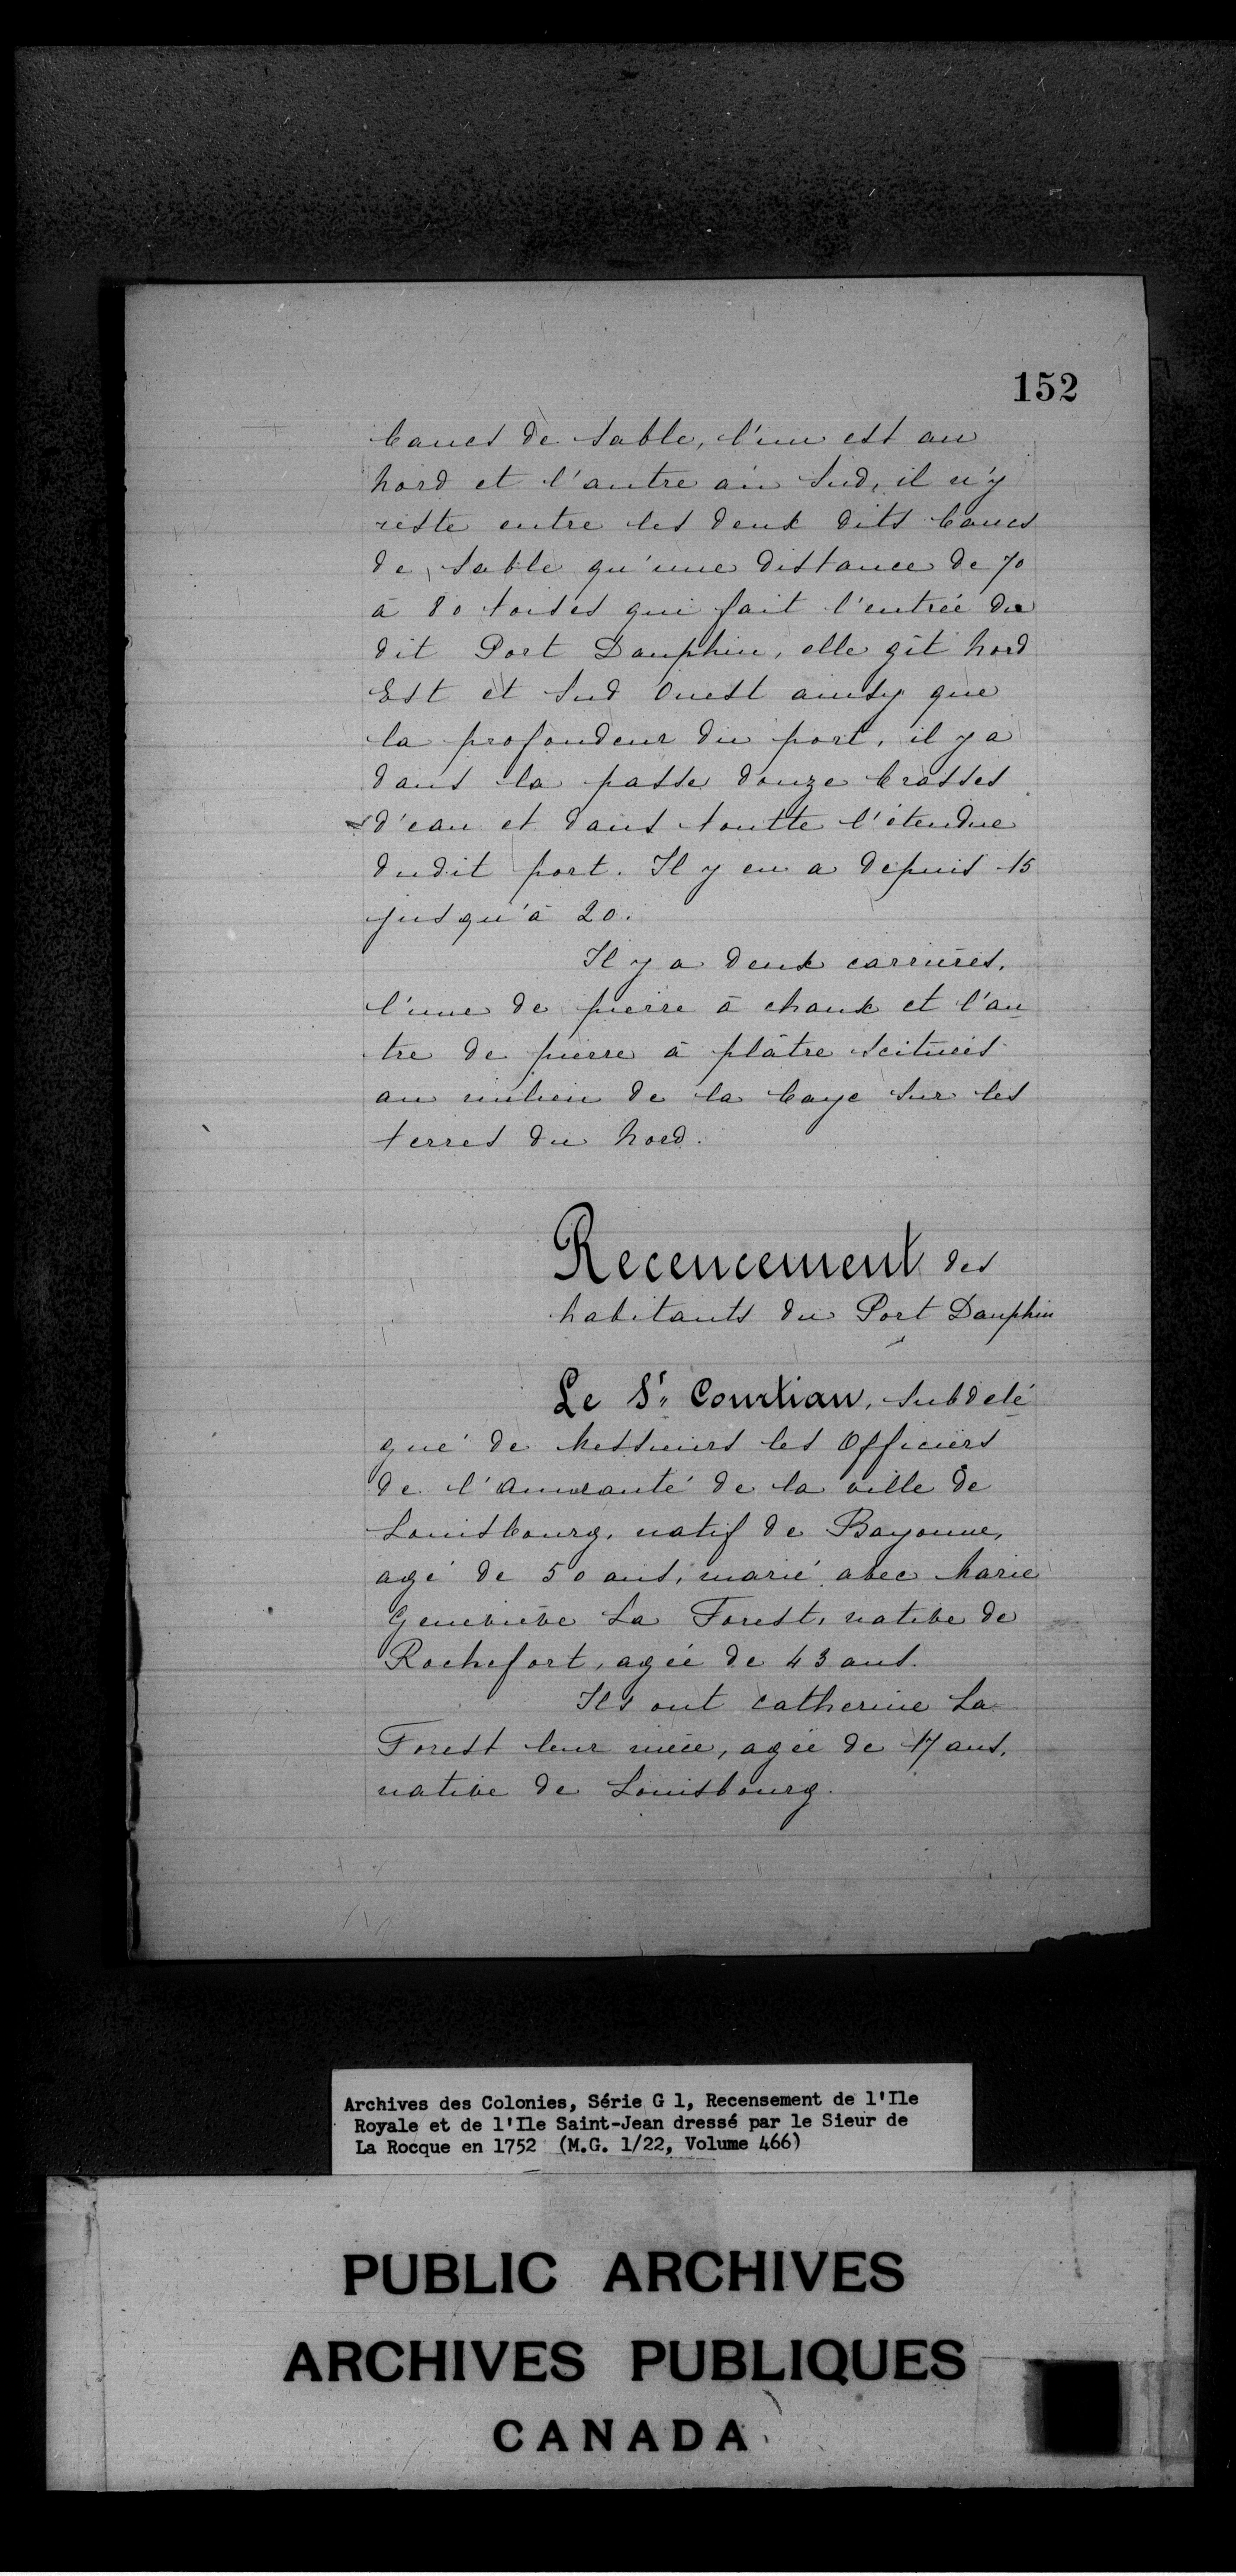 152
bancs de sable, l'un est au
nord et l'autre au sud, il n'y
reste entre les deux dits bancs
de sable qu'une distance de 70
à 80 toises qui fait l'entrée du
dit Port Dauphin, elle gît nord
Est et Sud Ouest ainsy que
la profondeur du port, il y a
dans la passe douze brasses
d'eau et dans toutte l'étendue
dudit port. Il y en a depuis 15
jusqu'à 20.
Il y a deux carrières,
l'une de pierre à chaux et l'au
tre de pierre à plâtre scituées
au milieu de la baye sur les
terres du nord.
Recencement des
habitants du Port Dauphin
Le Sr. Courtiau, subdélé
gué de Messieurs les Officiers
de l'amirauté de la ville de
Louisbourg, natif de Bayonne,
agé de 50 ans, marié avec Marie
Geneviève La Forest, native de
Rochefort, agée de 43 ans.
Ils ont Catherine La
Forest leur nièce, agée de 17 ans,
native de Louisbourg.
Archives des Colonies, Série G 1, Recensement de l'Ile
Royale et de l'Ile Saint-Jean dressé par le Sieur de
La Rocque en 1752 (M.G. 1/22, Volume 466)
PUBLIC ARCHIVES
ARCHIVES PUBLIQUES
CANADA